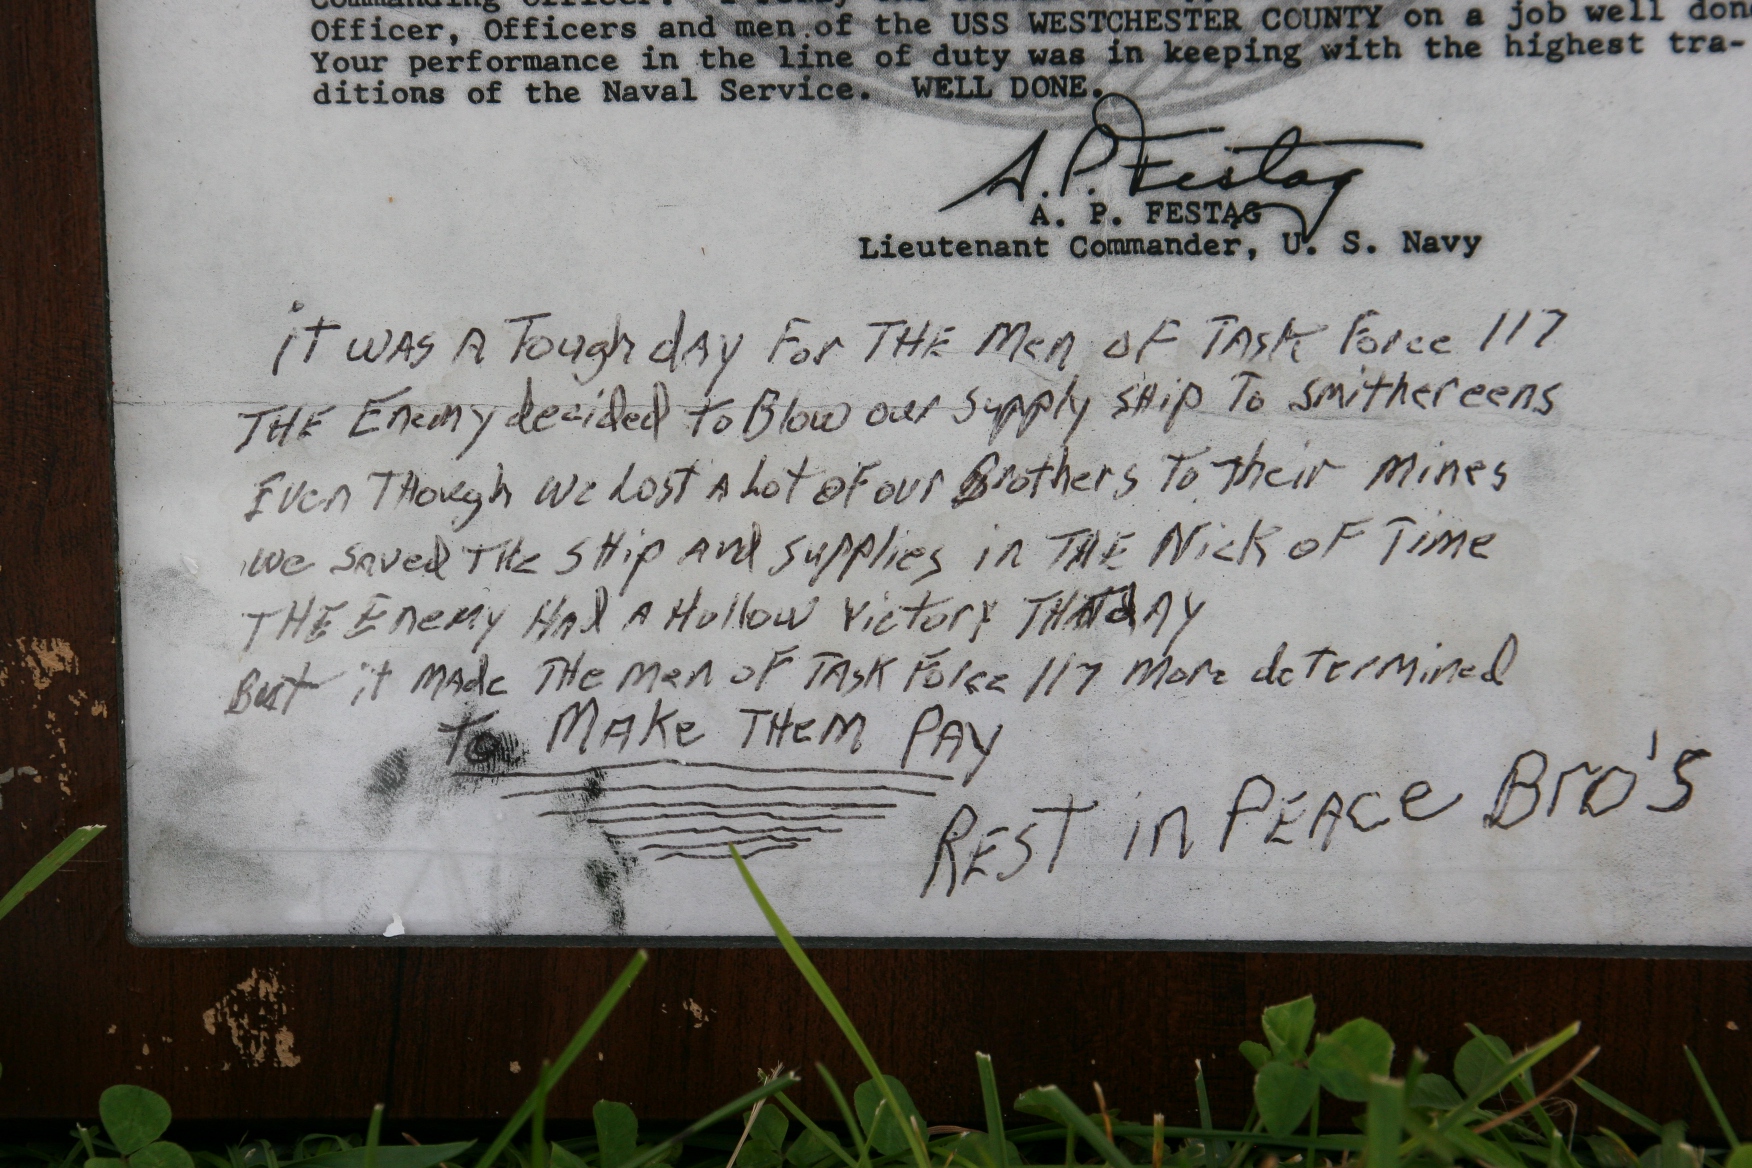 Commanding Officer.
Officer, Officers and men of the USS WESTCHESTER COUNTY on a job well done
Your performance in the line of duty was in keeping with the highest tra-
ditions of the Naval Service. WELL DONE.
A. P. Festag
A. P. FESTAG
Lieutenant Commander, U. S. Navy
iT WAS A Tough dAY For THE Men oF TASk Force 117
THE Enemy decided To Blow our supply SHip To smithereens
Even THough we Lost A Lot oF our Brothers To Their mines
we saved THe SHip And supplies in THE Nick oF Time
THE Enemy Had A Hollow Victory THAT dAY
But it MAde THe men oF TASk Force 117 More deTermined
To MAKe THeM PAY
REST in PEACe Bro's